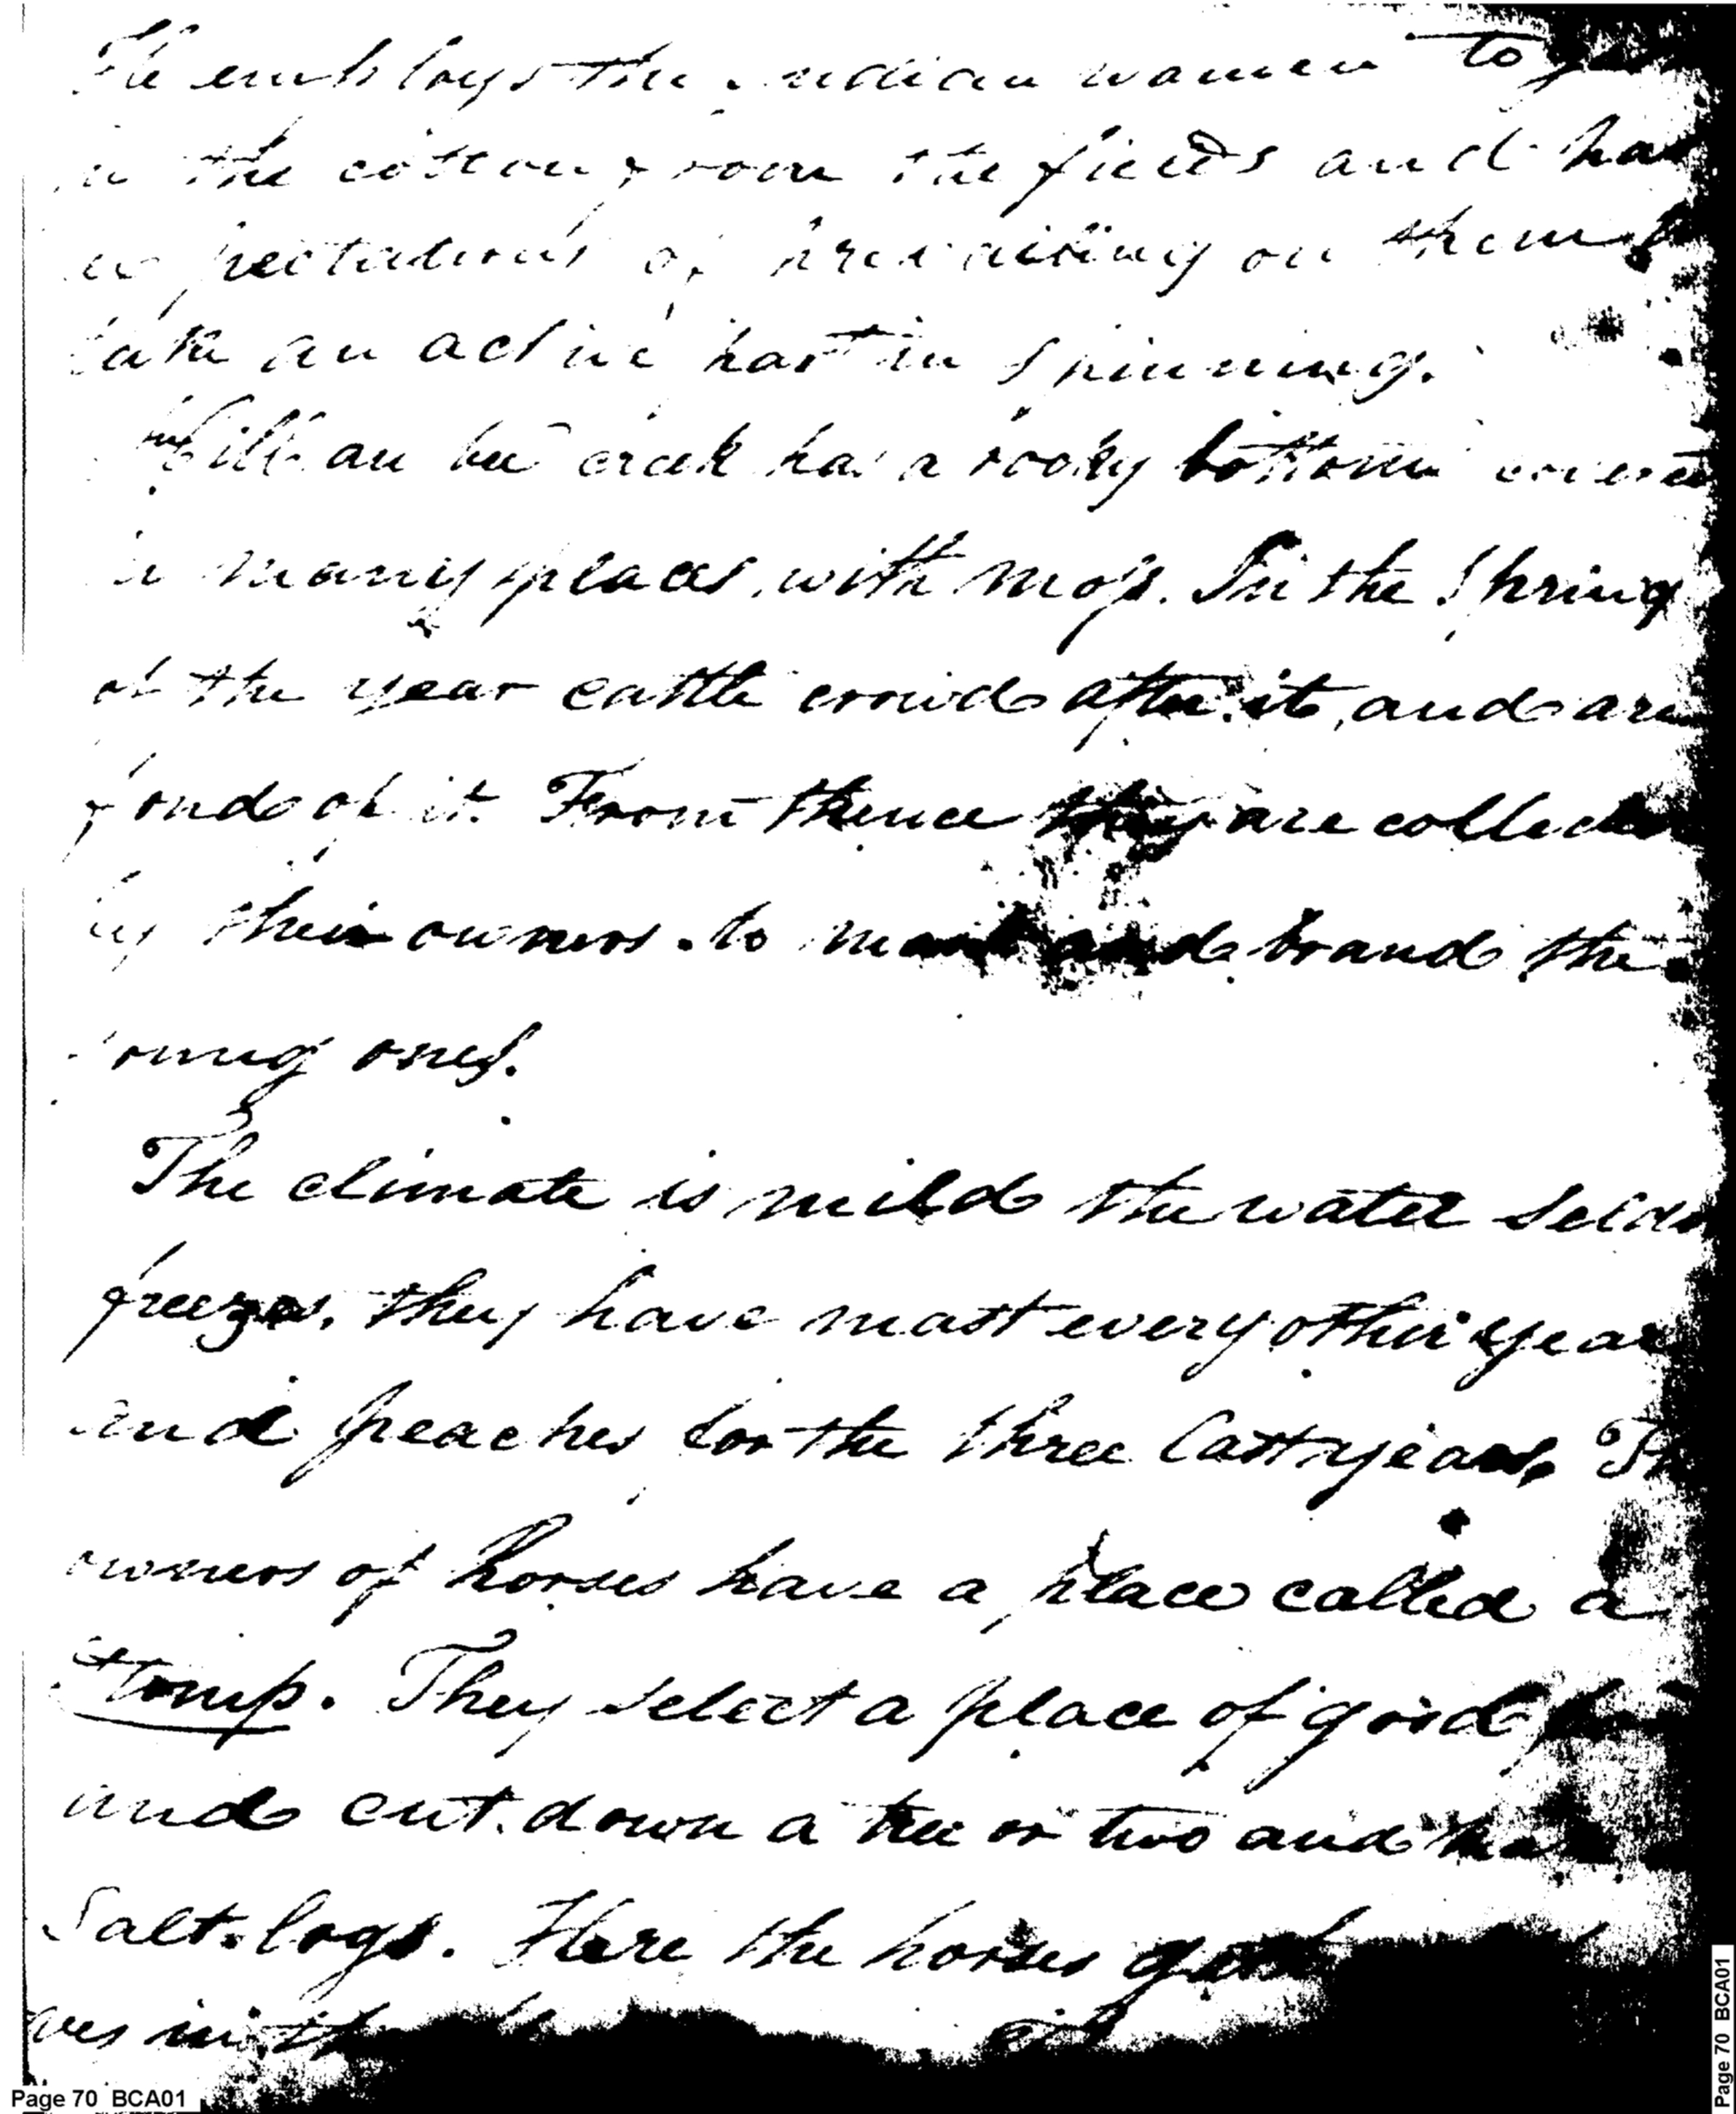 He employs the Indian women to
in the cotton from the fields and has
expectations of prevailing on them
take an active part in spinning.
au bee creek has a rocky bottom covered
in many places, with moss. In the Spring
of the year cattle crowd after it, and are
fond of it. From thence they are collected
by their owners. to mark and brand the
young ones.
The climate is mild the water seldom
freezes, they have mast every other year
and peaches for the three last years, The
owners of horses have a place called a
stomp. They select a place of good
and cut. down a tree or two and
Salt. logs. Here the horses
ves in
Page 70 BCA01
Page 70 BCA01